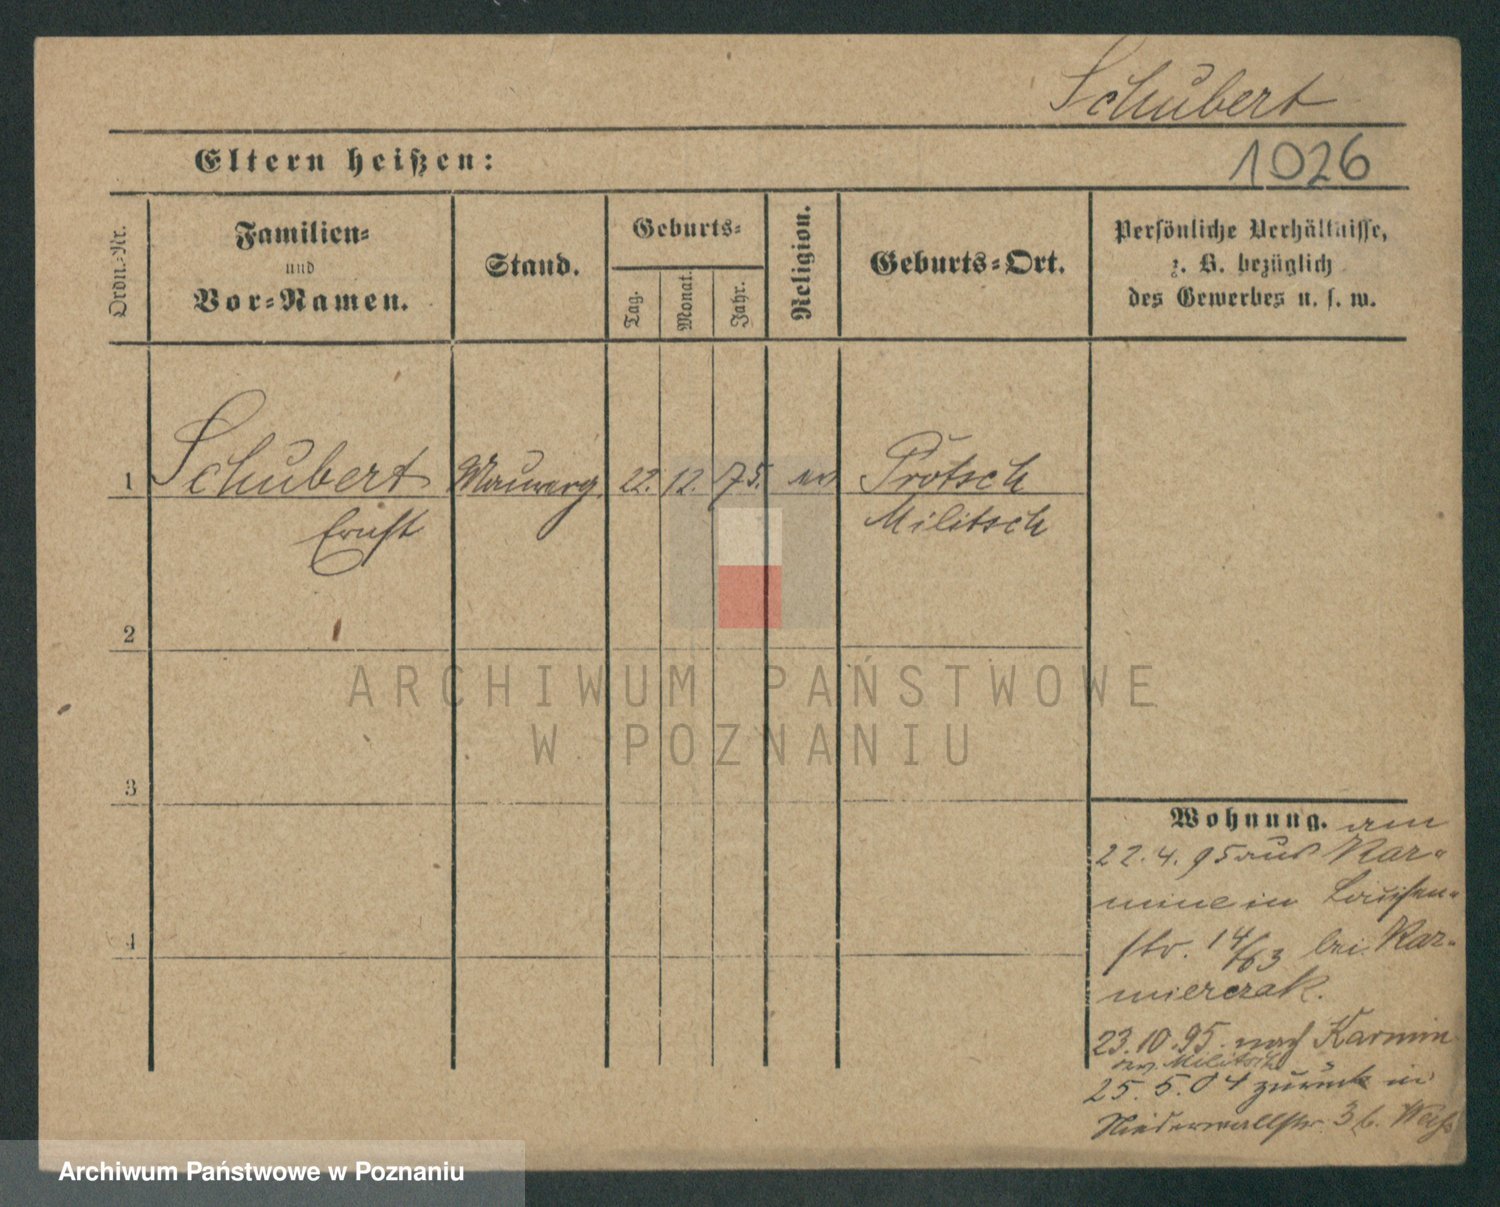 Schubert
Eltern heißen:
1026
Ordn.-Nr.
Familien-
und
Vor-Namen.
Stand.
Geburts-
Tag.
Monat.
Jahr.
Religion.
Geburts-Ort.
Persönliche Verhältnisse,
z. B. bezüglich
des Gewerbes u. s. w.
1 Schubert Maurerg. 22. 12. 75. ev Protsch
Ernst Militsch
2
3
4
ARCHIWUM PAŃSTWOWE
W POZNANIU
Wohnung. am
22.4.95 aus Kar-
mine in Louisen-
str. 14/63 bei Kar-
mierczak.
23.10.95. nach Karmin
Militsch
25.5.04 zurück in
Niederwallstr. 3 b.
Archiwum Państwowe w Poznaniu